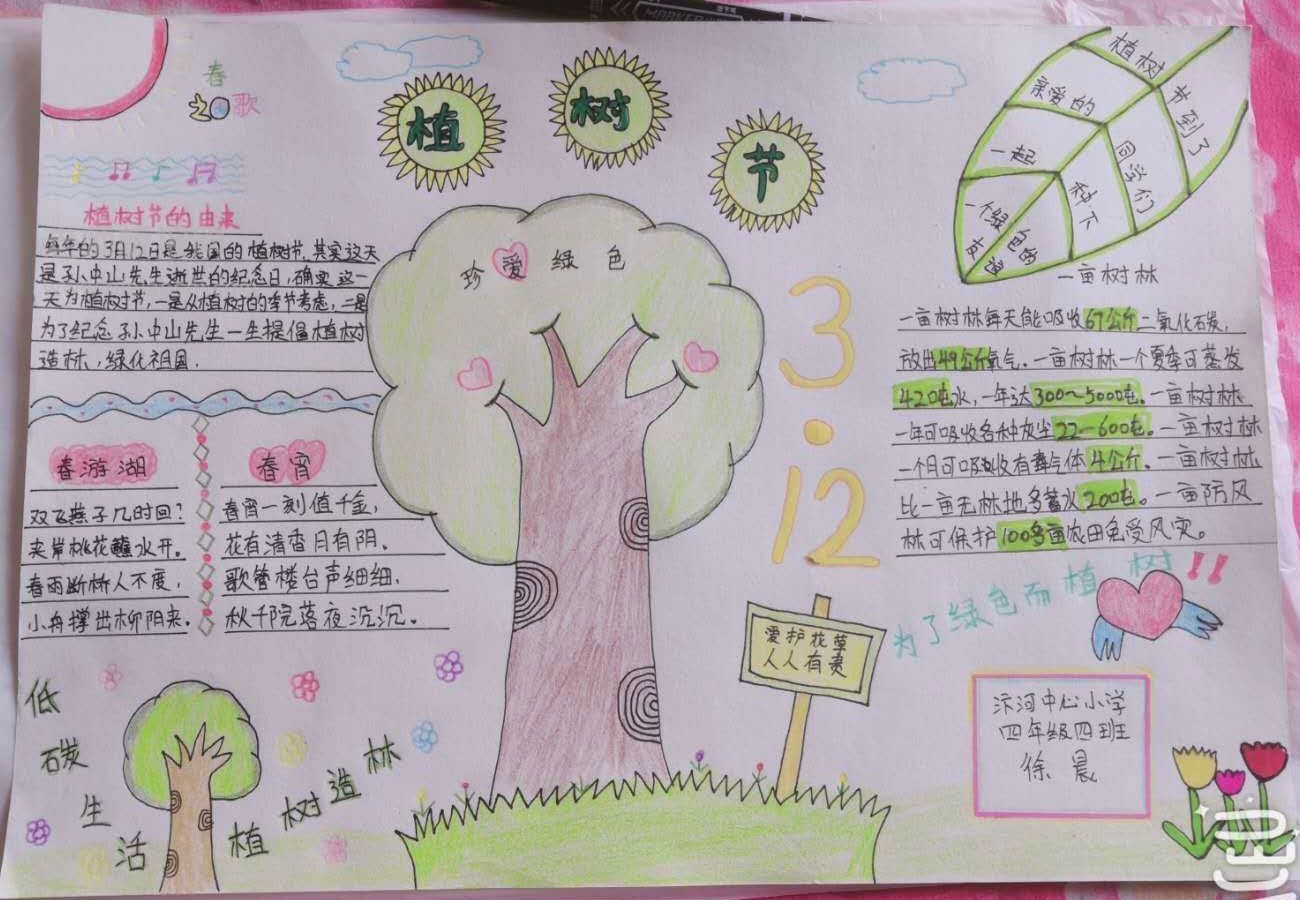 春
20歌
植树节
植树节的由来
每年的3月12日是我国的植树节,其实这天
是孙中山先生逝世的纪念日,确实这一
天为植树节,一是从植树的季节考虑,二是
为了纪念孙中山先生一生提倡植树
造林,绿化祖国.
春游湖
双飞燕子几时回?
夹岸桃花蘸水开.
春雨断桥人不度,
小舟撑出柳阴来.
春宵
春宵一刻值千金,
花有清香月有阴,
歌管楼台声细细,
秋千院落夜沉沉.
低碳生活
植树造林
珍爱绿色
3·12
爱护花草
人人有责
植树节到了
亲爱的
同学们
一起
种下
一个绿色的
一亩树林
一亩树林每天能吸收67公斤二氧化碳,
放出49公斤氧气.一亩树林一个夏季可蒸发
420吨水,一年达300~5000吨。一亩树林
一年可吸收各种灰尘22—600吨。一亩树林
一个月可吸收有毒气体4公斤.一亩树林
比一亩无林地多蓄水200吨。一亩防风
林可保护100多亩农田免受风灾。
为了绿色而植树!!
汴河中心小学
四年级四班
徐晨